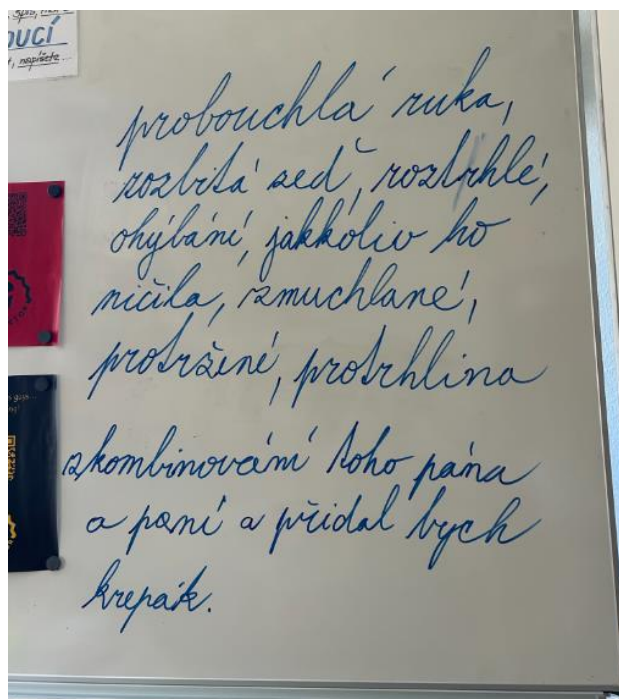 OUCÍ
napíšete...
probouchlá ruka,
rozbitá zeď, roztrhlé,
ohýbání, jakkoliv ho
ničila, zmuchlané,
protržené, protrhlina
zkombinování toho pána
a paní a přidal bych
krepák.